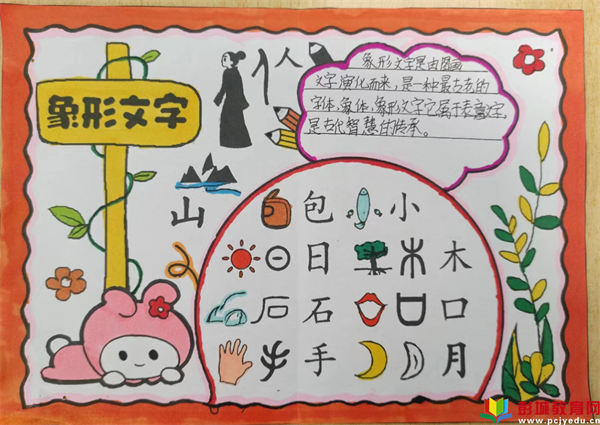 象形文字
人
象形文字是由图画
文字演化而来，是一种最古老的
字体，象体，象形文字它属于表意文字，
是古代智慧的传承。
山 包 小
日 木
石 口
手 月
彭城教育网
www.pcjyedu.cn